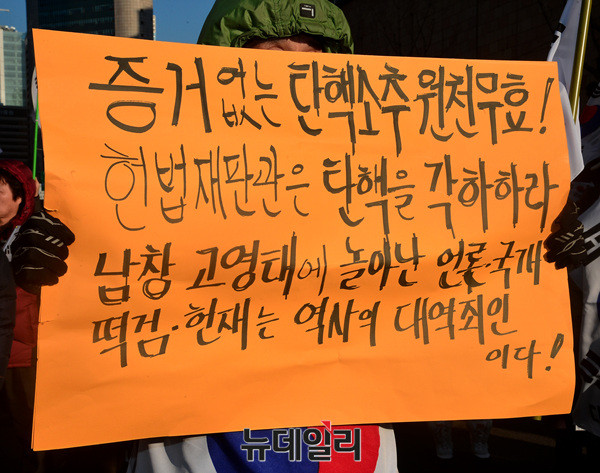 증거 없는 탄핵소추 원천무효!
헌법재판관은 탄핵을 각하하라
남창 고영태에 놀아난 언론·국개
떡검·헌재는 역사의 대역죄인
이다!
뉴데일리